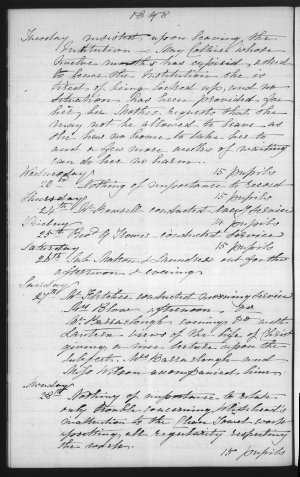 1898
Tuesday insisted upon leaving the
Institution. Amy Collier whose
twelve months has expired, asked
to leave the Institution she is
tired of being locked up, and no
situation has been provided for
her, her Mother requests that she
may not be allowed to leave as
she has no home to take her to
and a few more weeks of waiting
can do her no harm.
Wednesday 15 pupils
23rd Nothing of importance to record
Thursday 15 pupils
24th Mr Mansell conducted Service
Friday 14 pupils
25th Revd G Flower conducted Service
Saturday 15 pupils
26th Sub Matron & Laundress out for the
afternoon & evening.
Sunday
27th Mr Fletcher conducted morning Service
Mrs Blow afternoon, and
Mr Barraclough evening with
Lantern views of the life of Christ
giving a nice lecture upon the
subject. Mrs Barraclough and
Miss Wilson accompanied him
Monday
28th Nothing of importance to relate
only trouble concerning
inattention to the work
upsetting all regularity respecting
the work.
15 pupils